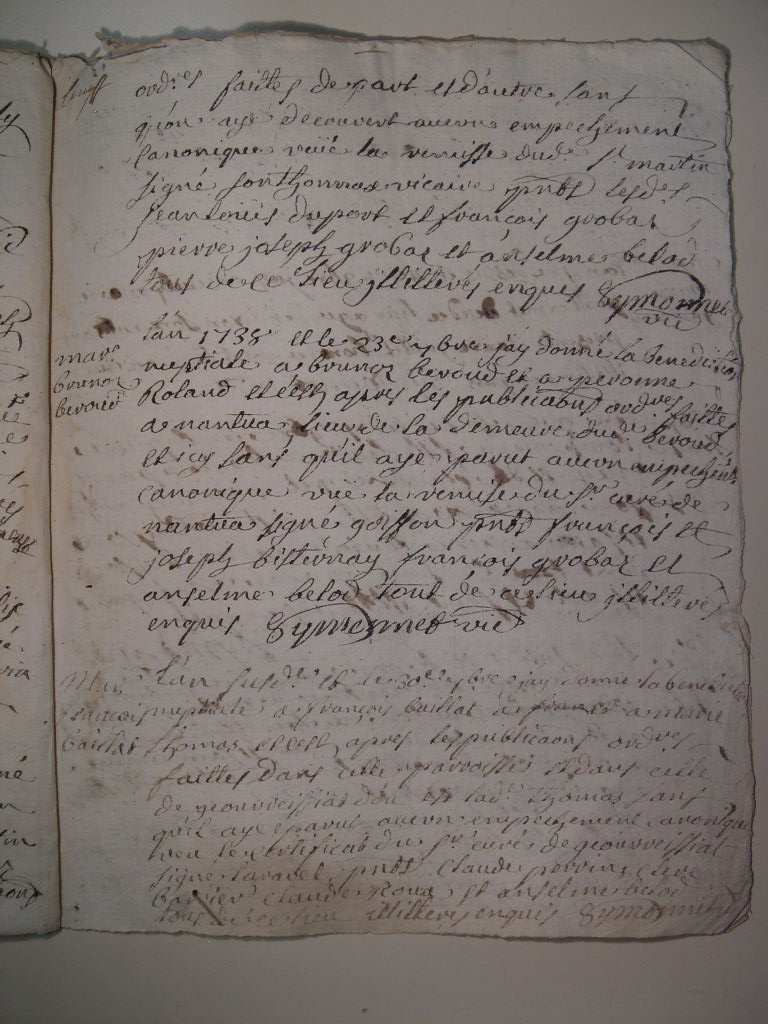 ord.res faittes de part et d'autre sans
qu'on aye decouvert aucun empechement
Canonique vüe la remisse dud. St martin
signé vicaire pnts lesd.
Jean loüis duport et françois grobaz
pierre joseph grobaz et anselme belod
tous de ce lieu jllitterés enquis Symonnet
vic
mar.
brunoz
beroud
l'an 1738 et le 23e 9bre j'ay donné la benediction
nuptiale a brunoz beroud et a peronne
Roland et c'est apres les publicaons ord.res faittes
a nantua lieu de la demeure dud. beroud
et icy sans qu'il aye parut aucun empechemt
canonique vüe la remise du Sr curé de
nantua signé goiffon pnts françois et
joseph françois grobaz et
anselme belod tout de ce lieu jllitterés
enquis Symonnet vic
Mar.
francois
baillat
l'an susd. et le 30e 9bre j'ay donné la benediction
nuptiale a françois baillat et a marie
thomas et c'est apres les publicaons ord.res
faittes dans cette parroisse et dans celle
de geovreissiat d'où est lad. thomas sans
qu'il aye parut aucun empechement canonique
veu le certificat du Sr curé de geovreissiat
signé pnts Claude perrin
Claude Roux et anselme belod
tous de ce lieu illitterés enquis Symonnet